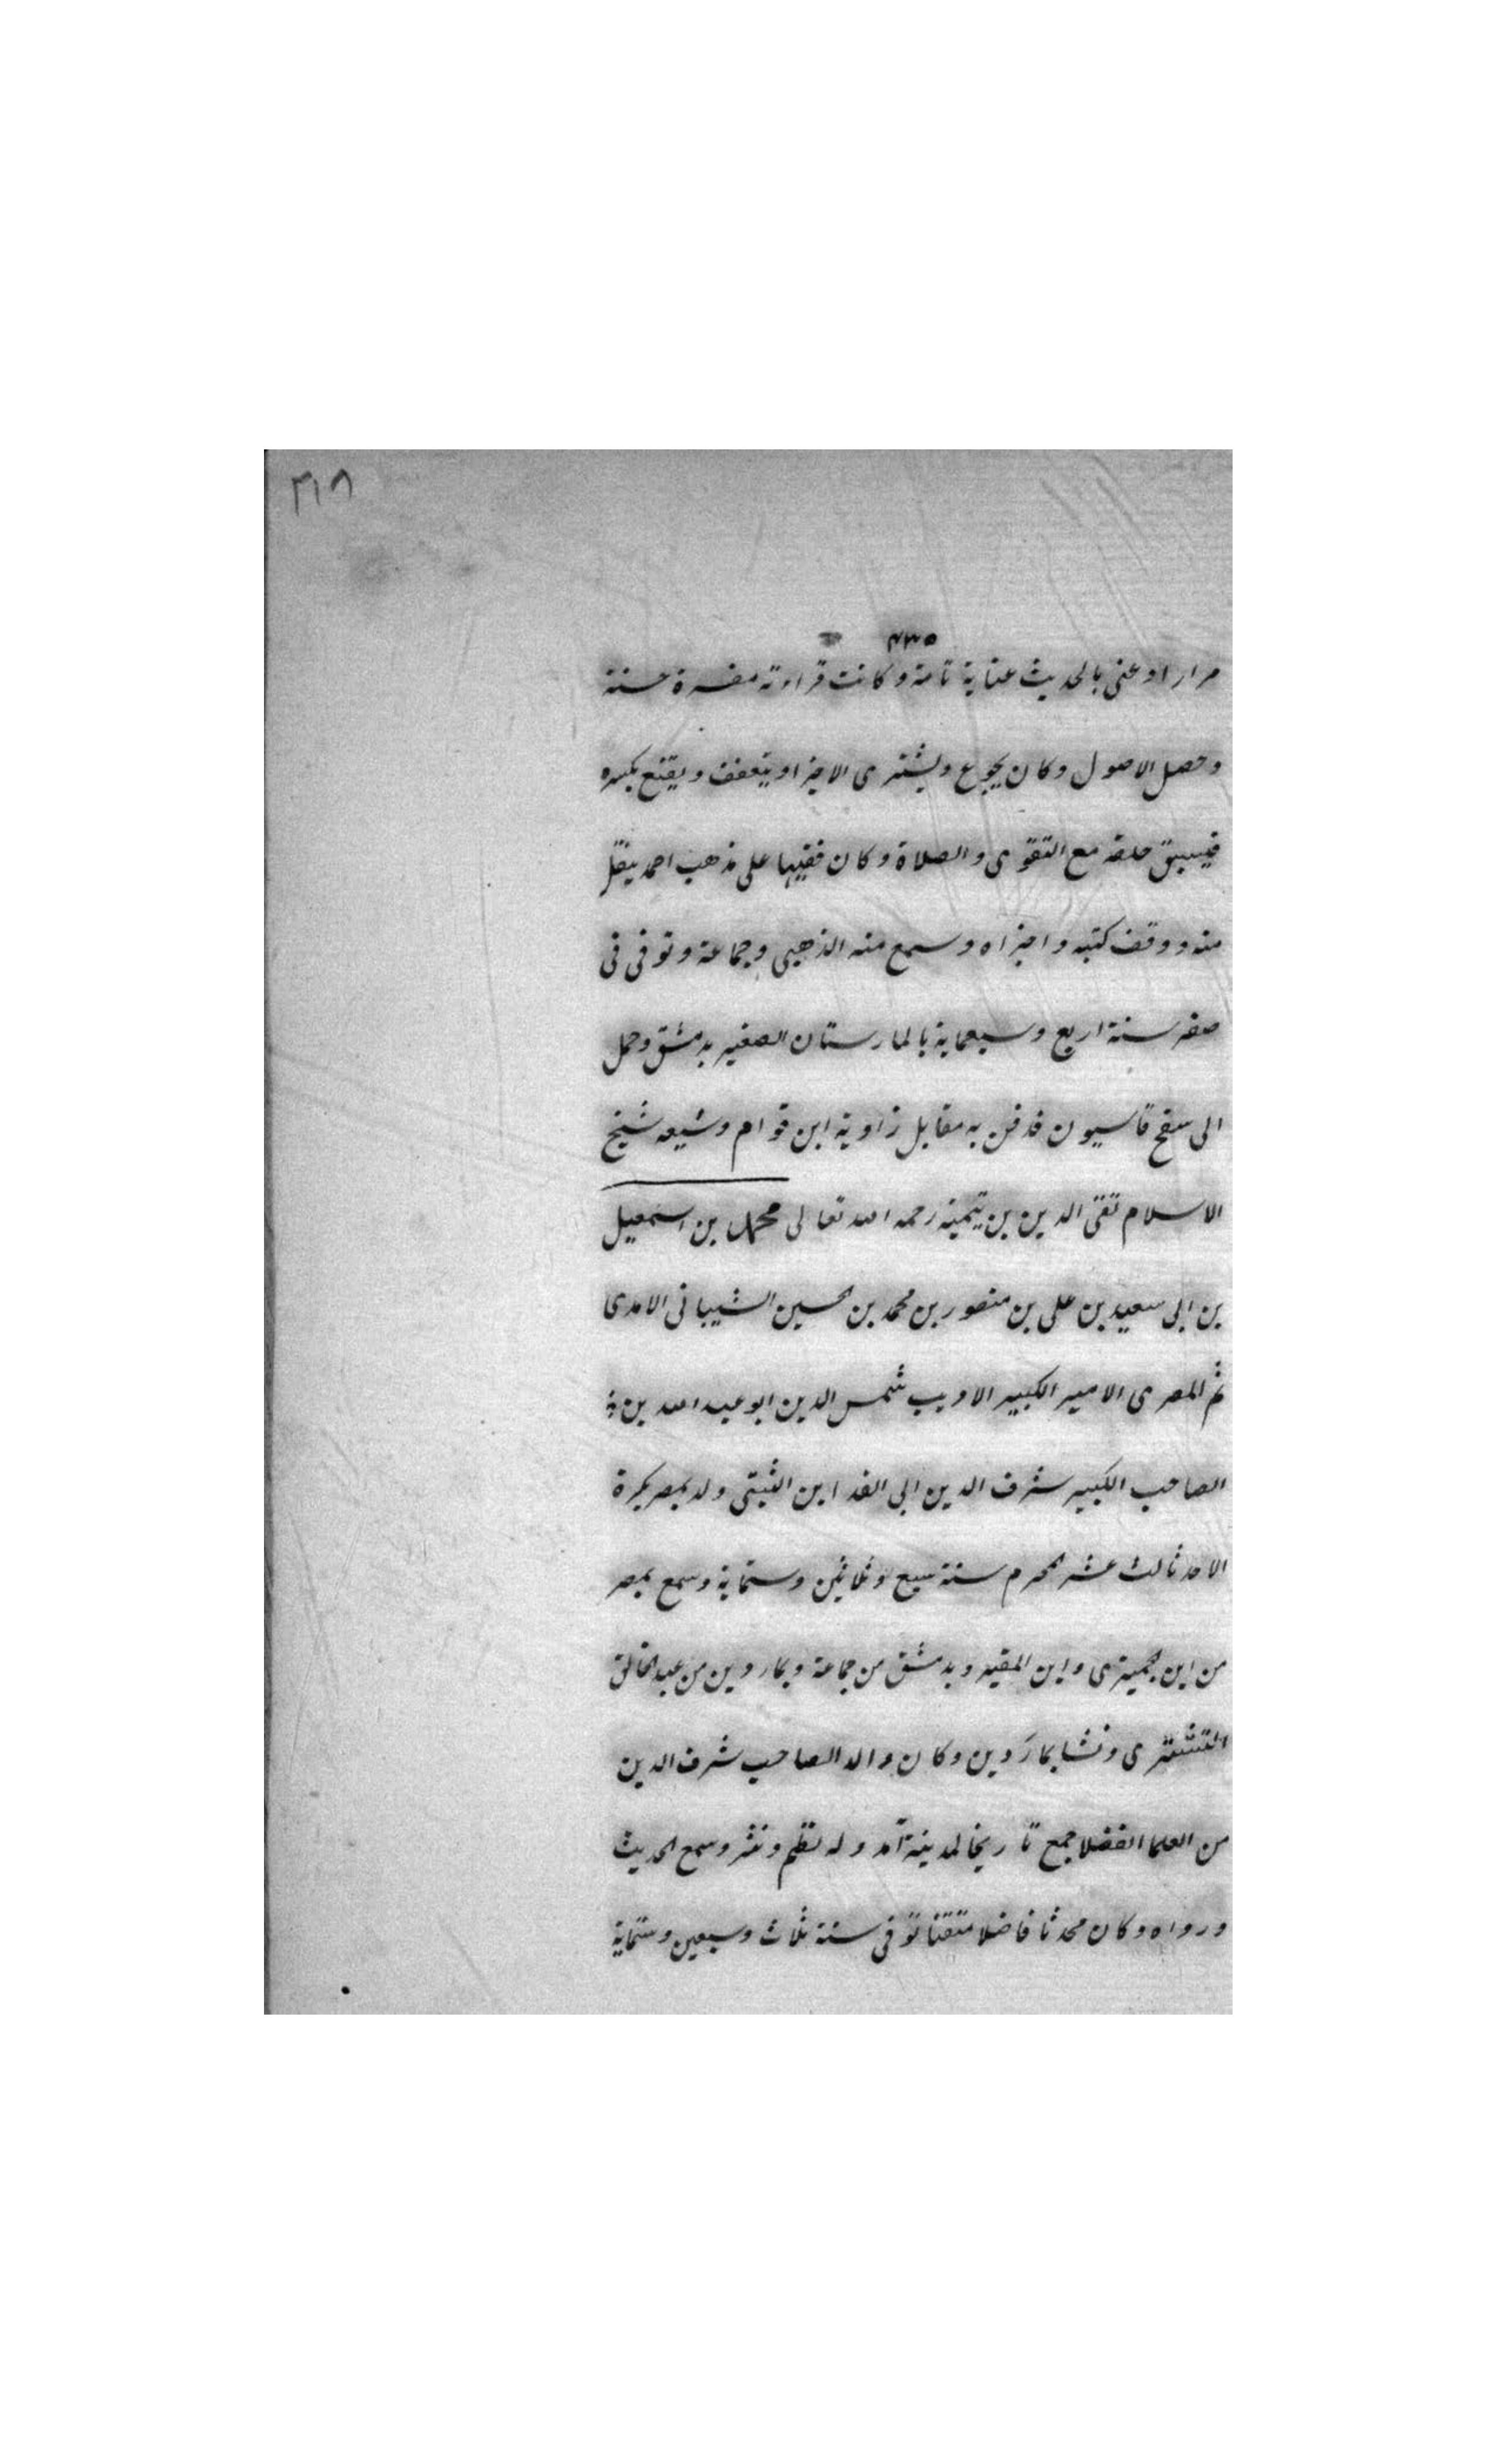 ٣١٨
٤٣٥
مرارا وعنى بالحديث عناية تامة وكانت قراءته مفسرة حسنة
وحصل الاصول وكان يجوع ويشترى الاجزا ويتعفف ويقنع بكسره
فيسيئ خلقه مع التقوى والصلاة وكان فقيها على مذهب احمد ينقل
منه ووقف كتبه واجزاه وسمع منه الذهبى وجماعة وتوفى فى
صفر سنة اربع وسبعماية بالمارستان الصغير بدمشق وحمل
الى سفح قاسيون فدفن به مقابل زاوية ابن قوام وشيعه شيخ
الاسلام تقى الدين بن تيمية رحمه الله تعالى محمد بن اسمعيل
بن ابى سعيد بن على بن منصور بن محمد بن الحسين الشيبانى الامدى
ثم المصرى الامير الكبير الاديب شمس الدين ابو عبد الله بن
الصاحب الكبير شرف الدين ابى الفدا بن التيتى ولد بمصر بكرة
الاحد ثالث عشر المحرم سنة سبع وثلاثين وستماية وسمع بمصر
من ابن الجميزى وابن المقير وبدمشق من جماعة وبماردين من عبد الخالق
التشترى ونشا بماردين وكان والد الصاحب شرف الدين
من العلما الفضلا جمع تاريخا لمدينة آمد وله نظم ونثر وسمع الحديث
ورواه وكان محدثا فاضلا متقنا توفى سنة ثلاث وسبعين وستماية